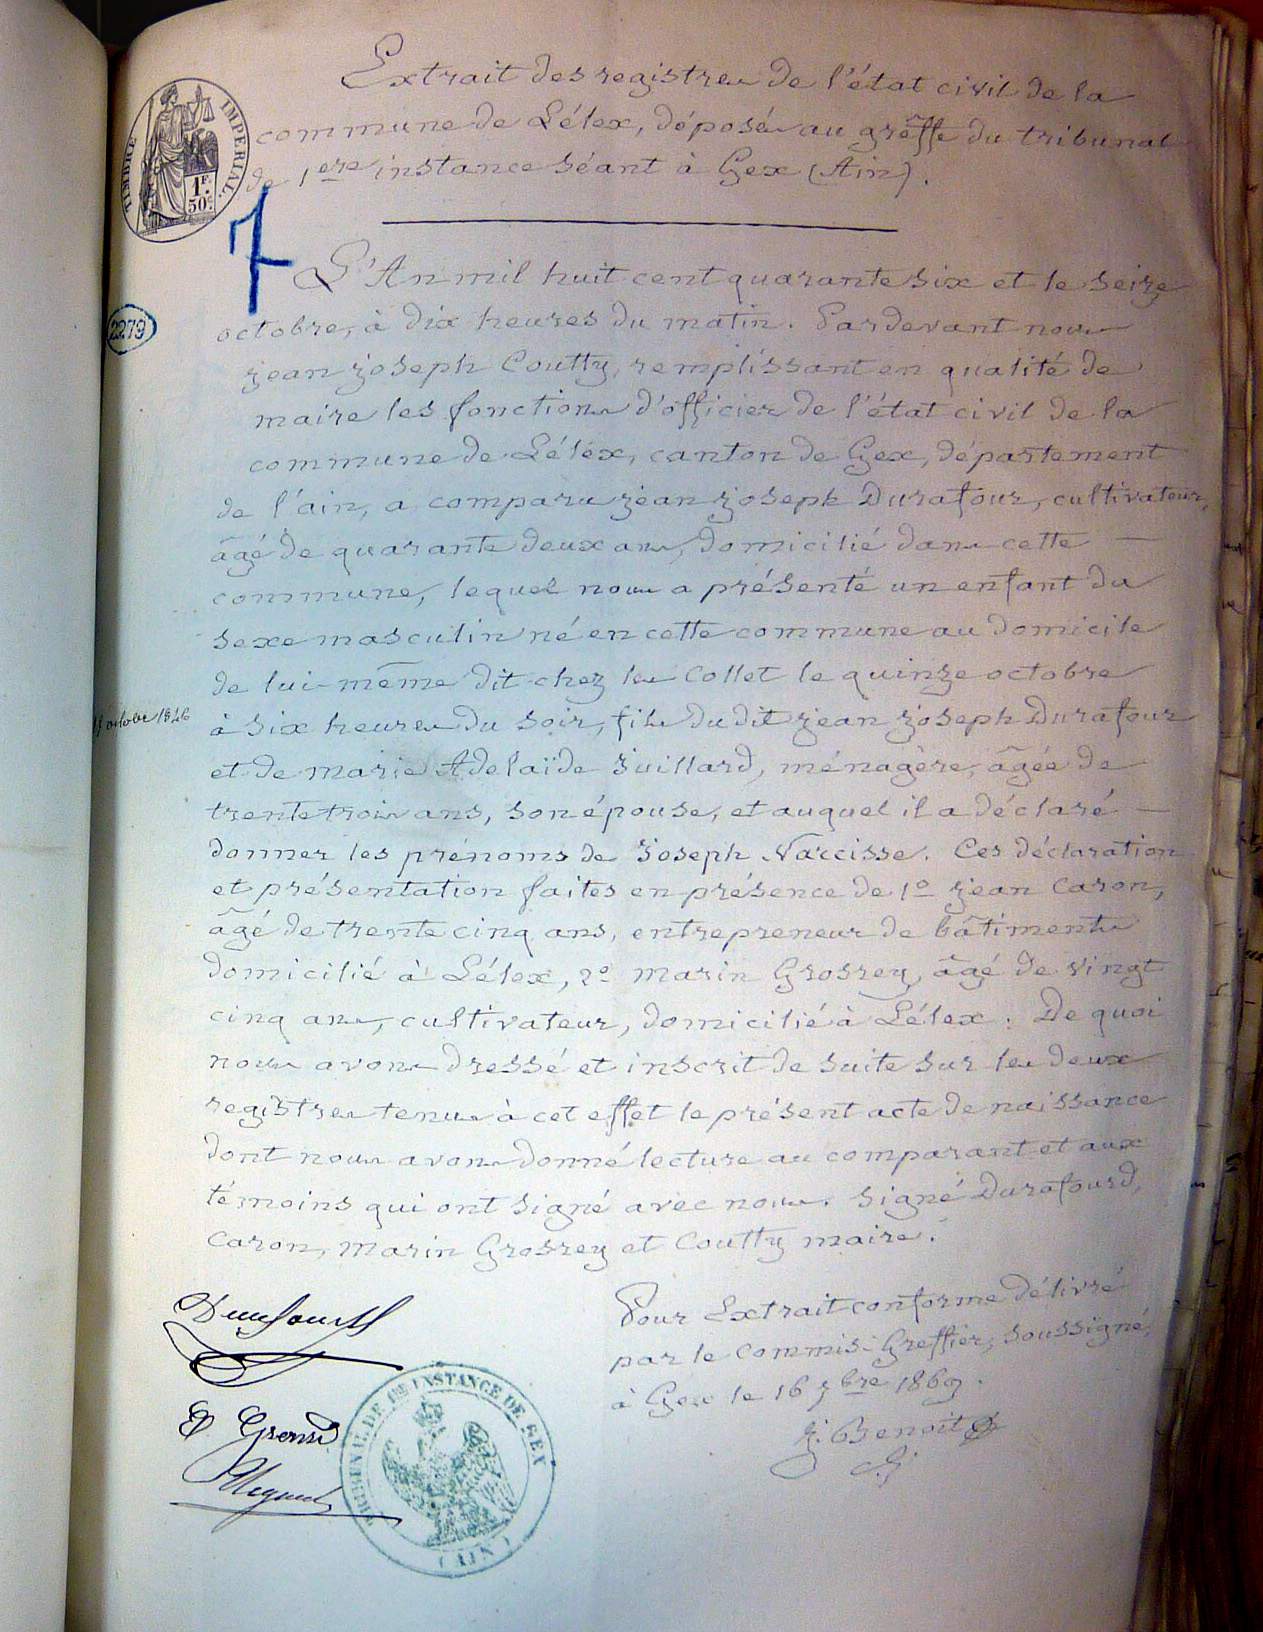 Extrait des registres de l'état civil de la
commune de Lélex, déposés au grêffe du tribunal
de 1ere instance séant à Gex (Ain).
TIMBRE IMPERIAL.
1F.
50c
7
L'An mil huit cent quarante six et le seize
octobre, à dix heures du matin. Pardevant nous
2279
jean joseph Coutty, remplissant en qualité de
maire les fonctions d'officier de l'état civil de la
commune de Lélex, canton de Gex, département
de l'ain, a comparu jean joseph Durafour, cultivateur,
âgé de quarante deux ans, domicilié dans cette —
commune, lequel nous a présenté un enfant du
sexe masculin né en cette commune au domicile
de lui-même dit chez les Collet le quinze octobre
octobre 1846
à six heures du soir, fils du dit jean joseph Durafour
et de marie Adelaïde Juillard, ménagère, âgée de
trente trois ans, son épouse, et auquel il a déclaré —
donner les prénoms de Joseph Narcisse. Ces déclaration
et présentation faites en présence de 1o jean Caron,
âgé de trente cinq ans, entrepreneur de bâtiments
domicilié à Lélex, 2o marin Grosrey, âgé de vingt
cinq ans, cultivateur, domicilié à Lélex. De quoi
nous avons dressé et inscrit de suite sur les deux
registres tenus à cet effet le présent acte de naissance
dont nous avons donné lecture au comparant et aux
témoins qui ont signé avec nous. Signé Durafourd,
Caron, marin Grosrey et Coutty maire.
Pour Extrait conforme délivré
par le Commis-Greffier, soussigné,
à Gex le 16 7bre 1869.
j. Benoit
TRIBUNAL DE 1RE INSTANCE DE GEX
(AIN)